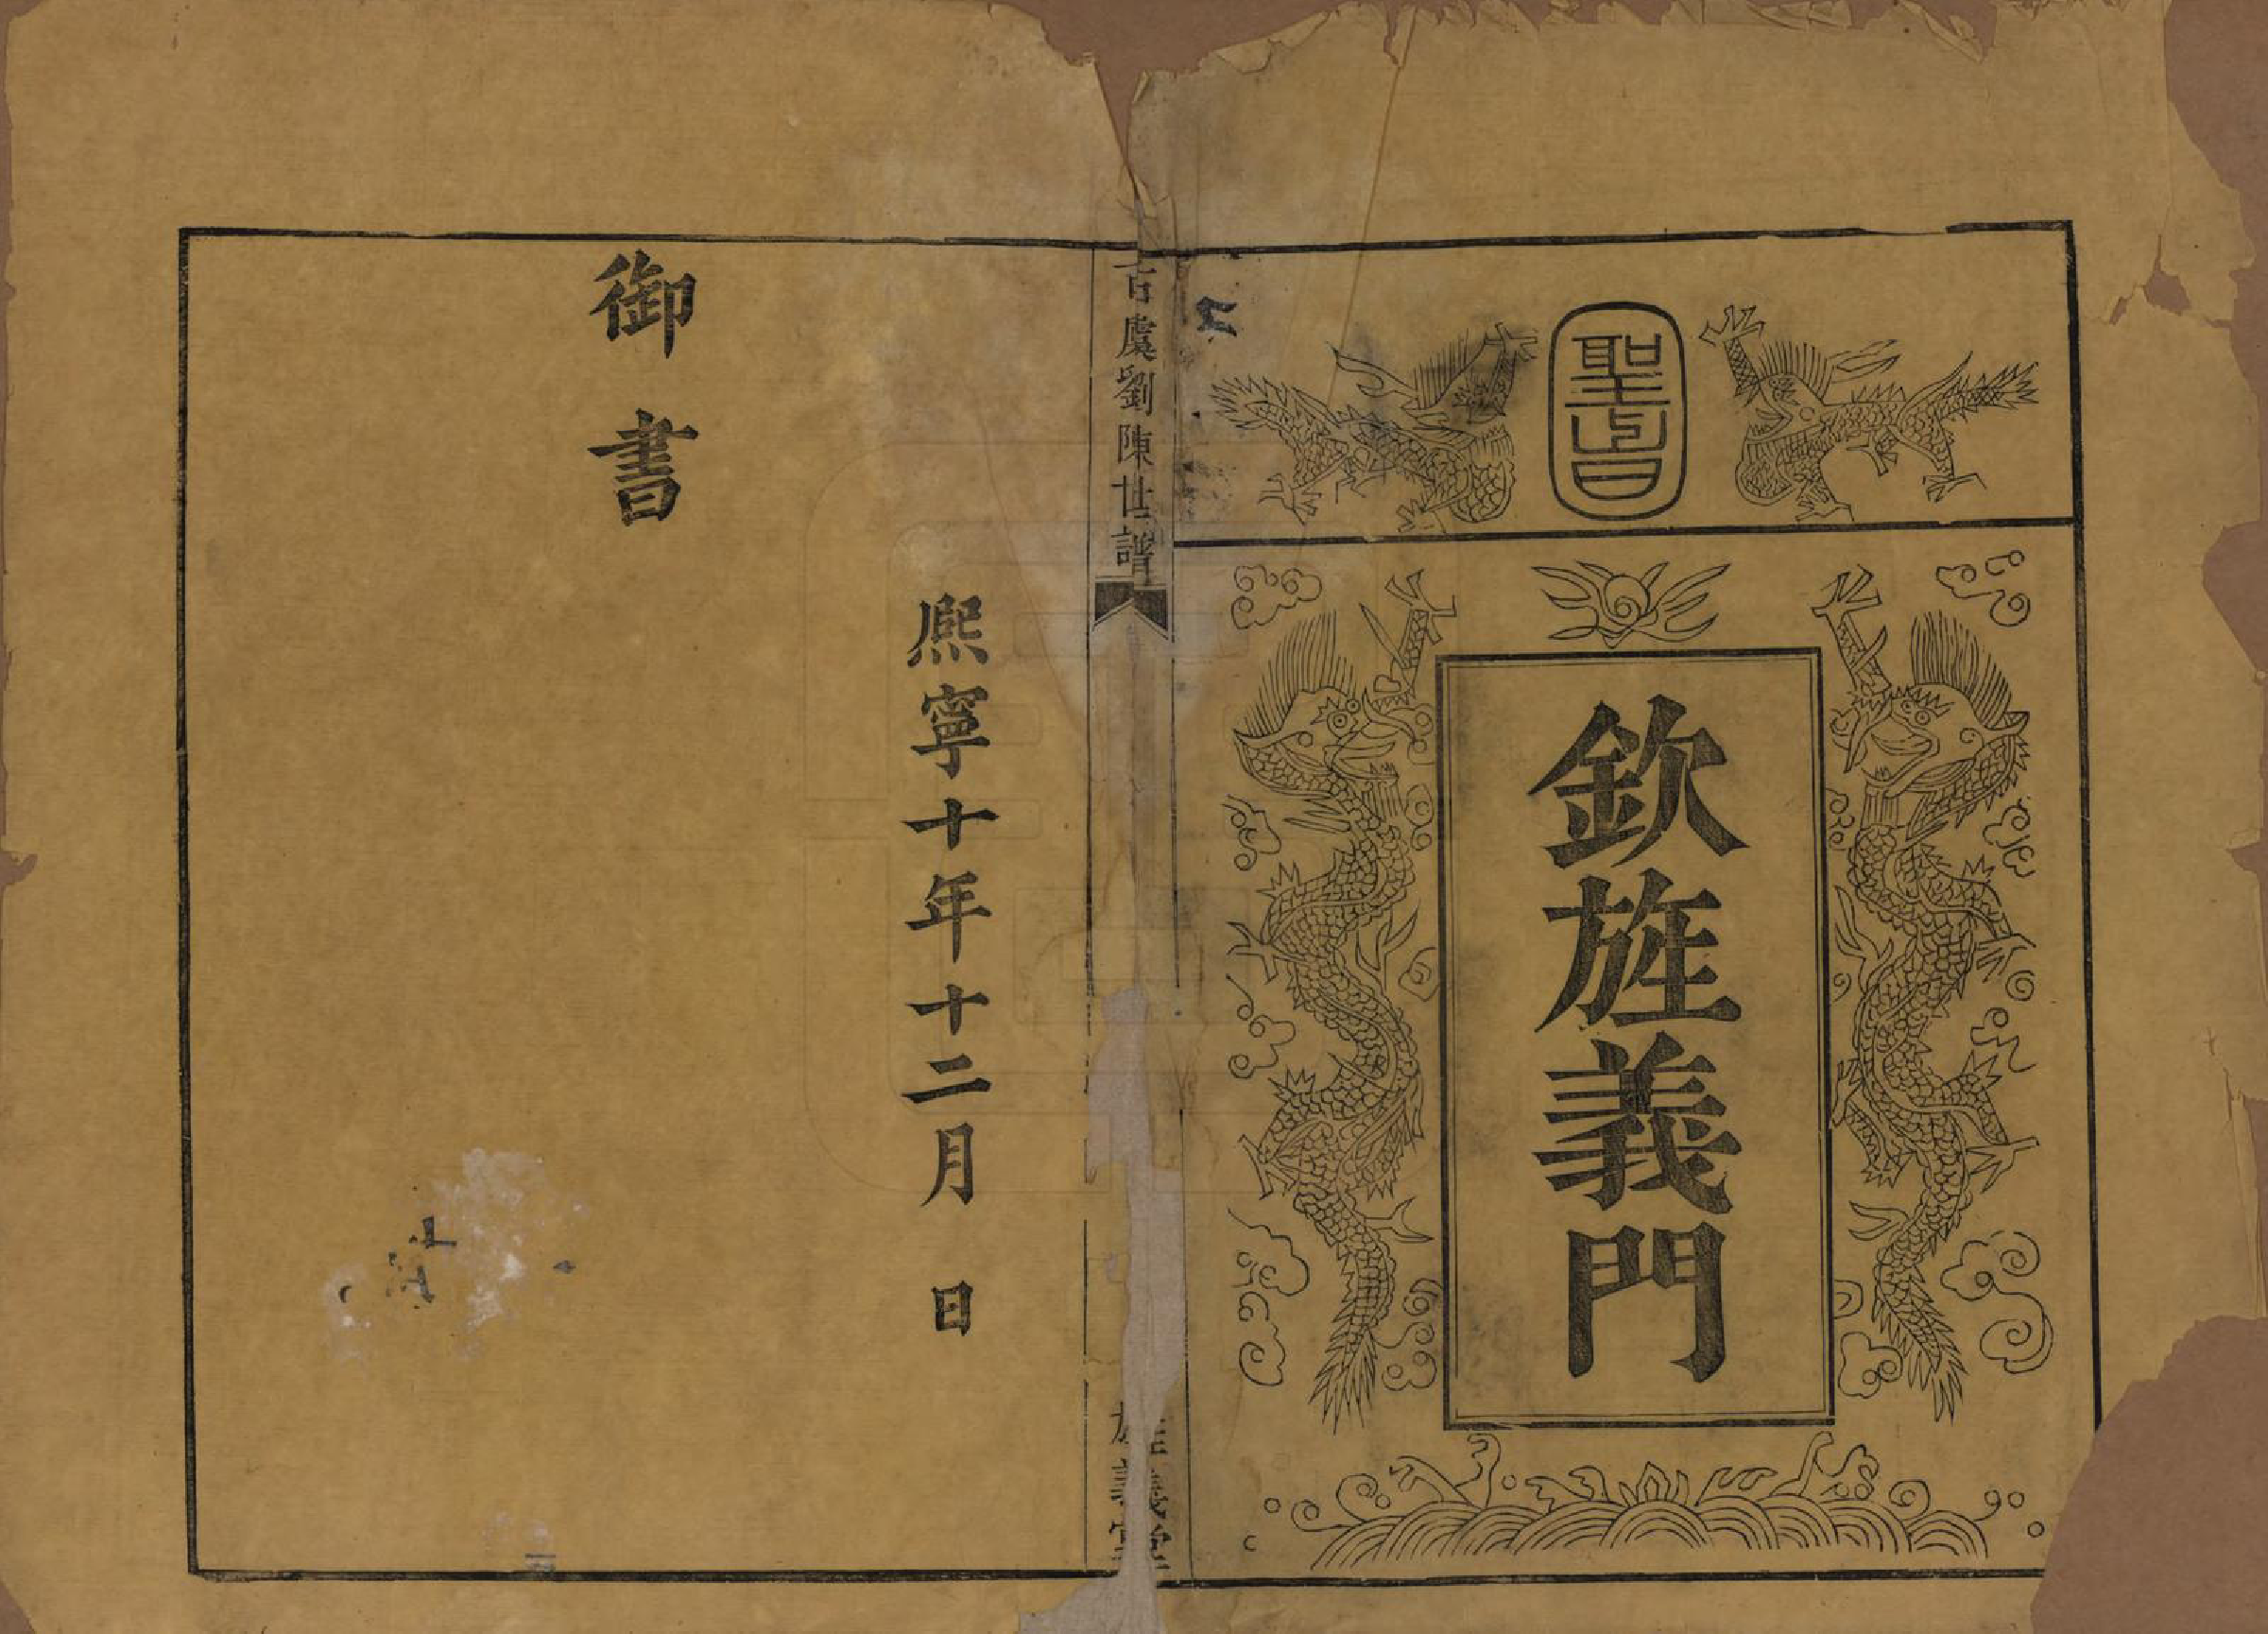 聖旨
欽旌義門
古虞劉陳世譜
旌義堂
熙寧十年十二月 日
御書